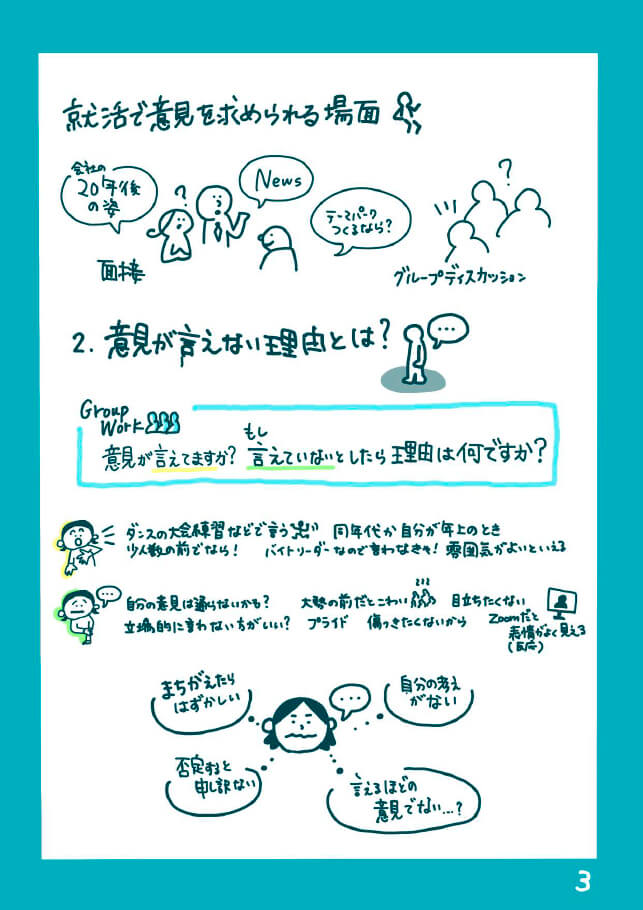 就活で意見を求められる場面
会社の
20年後
の姿
?
News
テーマパーク
つくるなら?
?
面接
グループディスカッション
2. 意見が言えない理由とは?
Group
Work
もし
意見が言えてますか? 言えていないとしたら理由は何ですか?
ダンスの大会練習などで言う 同年代か自分が年上のとき
少人数の前でなら! バイトリーダーなので言わなきゃ! 雰囲気がよいといえる
自分の意見は通らないかも? 大勢の前だとこわい 目立ちたくない
立場的に言わない方がいい? プライド 傷つきたくないから
Zoomだと
表情がよく見える
(反応)
まちがえたら
はずかしい
自分の考え
がない
否定すると
申し訳ない
言えるほどの
意見でない…?
3